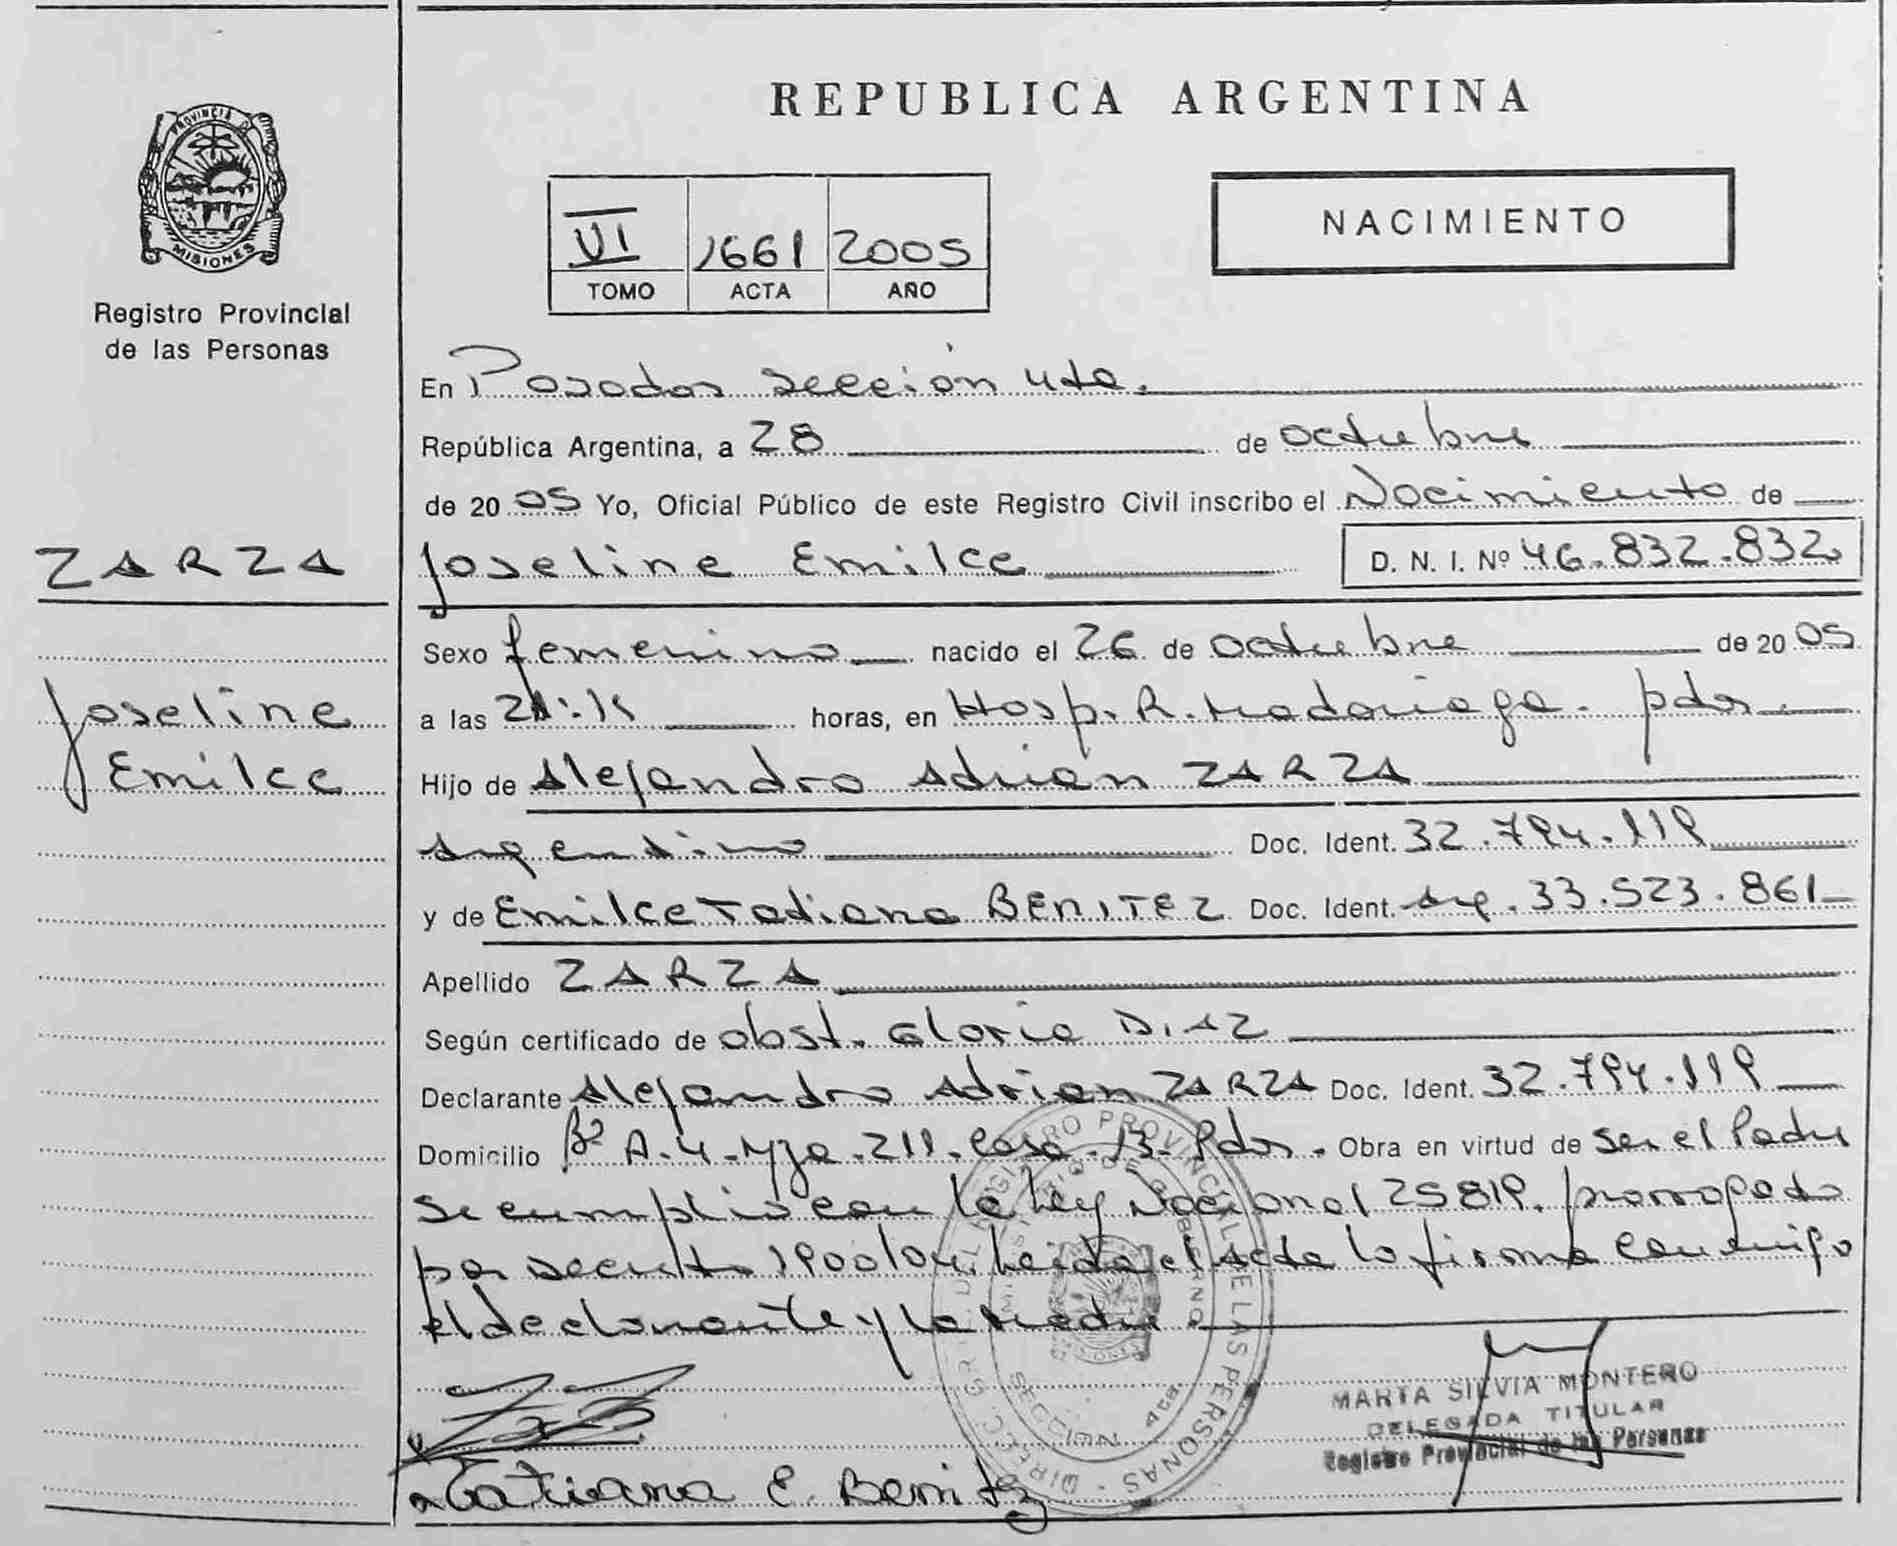 REPUBLICA ARGENTINA
PROVINCIA DE MISIONES
Registro Provincial
de las Personas
VI 1661 2005
TOMO ACTA AÑO
NACIMIENTO
En Posadas sección 4ta.
República Argentina, a 28 de octubre
de 2005 Yo, Oficial Público de este Registro Civil inscribo el Nacimiento de
ZARZA
Joseline Emilce
D. N. I. Nº 46.832.832
Sexo femenino nacido el 26 de octubre de 2005
Joseline
Emilce
a las horas, en Hosp. R. Madariaga. pdas
Hijo de Alejandro Adrian ZARZA
argentino Doc. Ident. 32.794.119
y de Emilce Tatiana BENITEZ Doc. Ident. arg. 33.523.861
Apellido ZARZA
Según certificado de obst. Gloria DIAZ
Declarante Alejandro Adrian ZARZA Doc. Ident. 32.794.119
Domicilio Bº A-4-Mza. 211. Casa. 13. Pdas. Obra en virtud de ser el Padre
se cumplio con la Ley Nacional 25819. prorrogado
por decreto 1900/04. Leida el acta la firma conmigo
el declarante y la madre
DIRECC. GRAL. DEL REGISTRO PROVINCIAL DE LAS PERSONAS
MINISTERIO DE GOBIERNO
MISIONES
SECCION 4ta
MARTA SILVIA MONTERO
DELEGADA TITULAR
Registro Provincial de las Personas
Tatiana E. Benitez